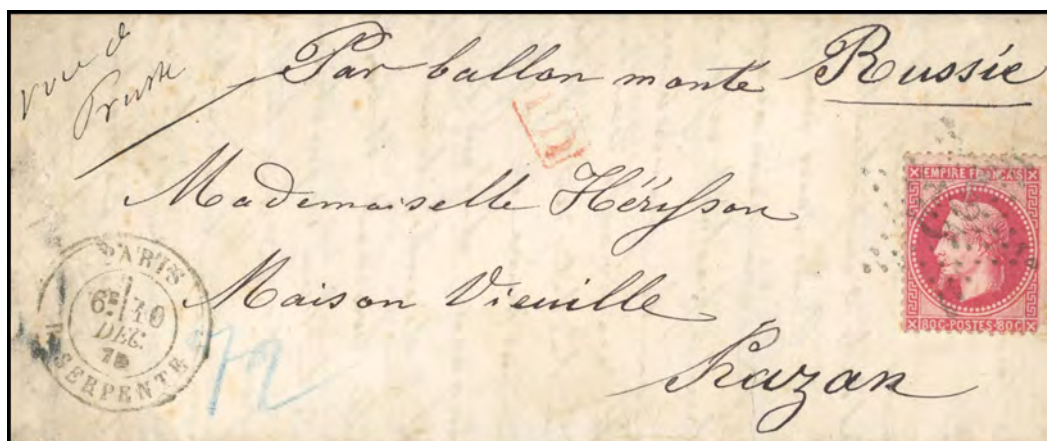 voie d
Prusse
Par ballon monté Russie
PD
Mademoiselle Hérisson
Maison Vieville
Kazan
PARIS
6E 10
DEC.
70
R. SERPENTE
72
EMPIRE FRANÇAIS
80C-POSTES-80C